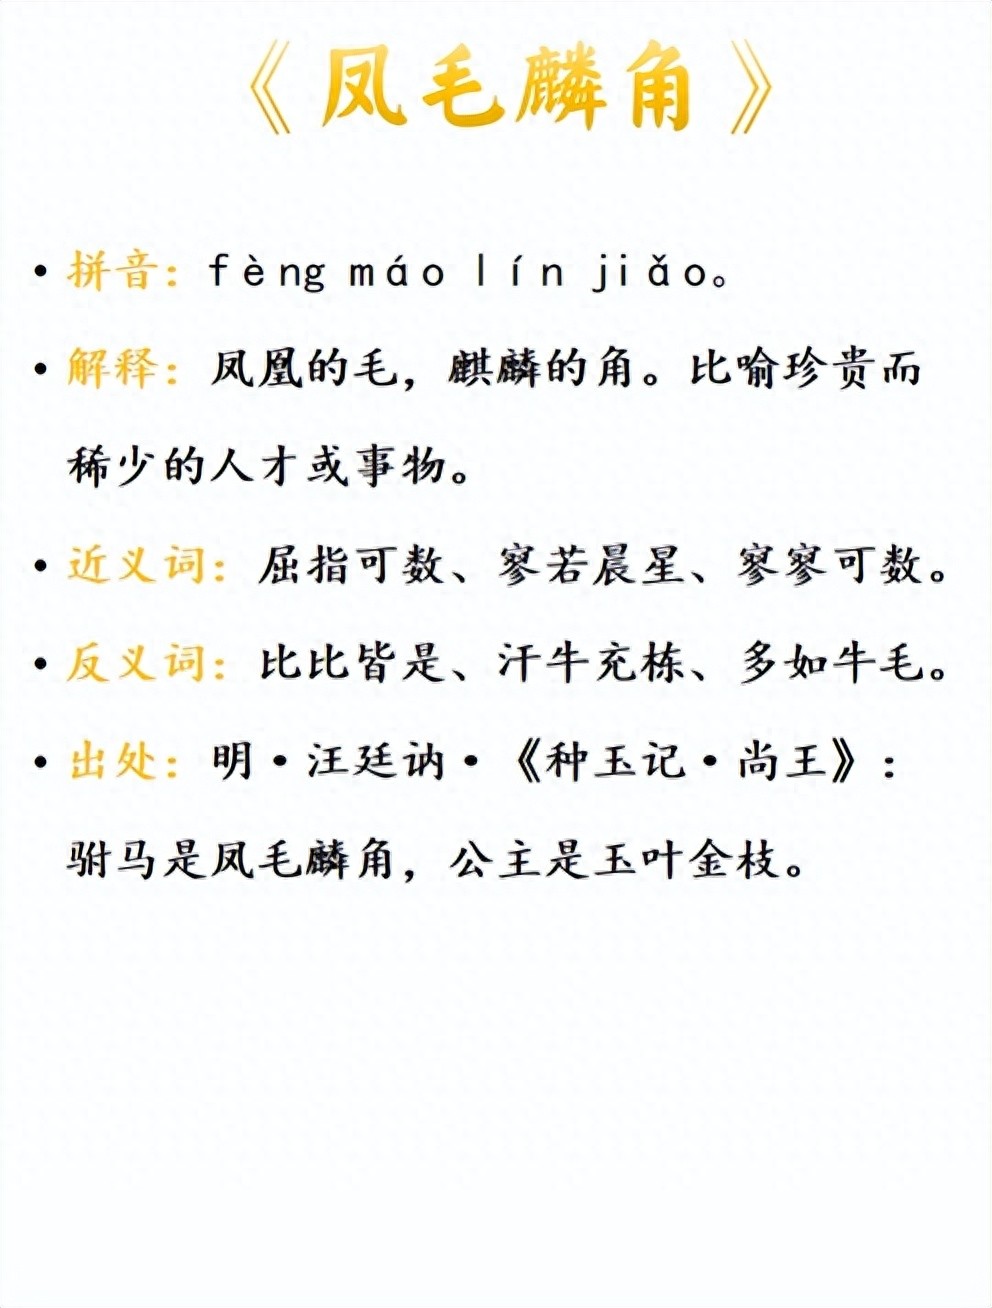 《凤毛麟角》
• 拼音：fèng máo lín jiǎo。
• 解释：凤凰的毛，麒麟的角。比喻珍贵而
稀少的人才或事物。
• 近义词：屈指可数、寥若晨星、寥寥可数。
• 反义词：比比皆是、汗牛充栋、多如牛毛。
• 出处：明·汪廷讷·《种玉记·尚王》：
驸马是凤毛麟角，公主是玉叶金枝。